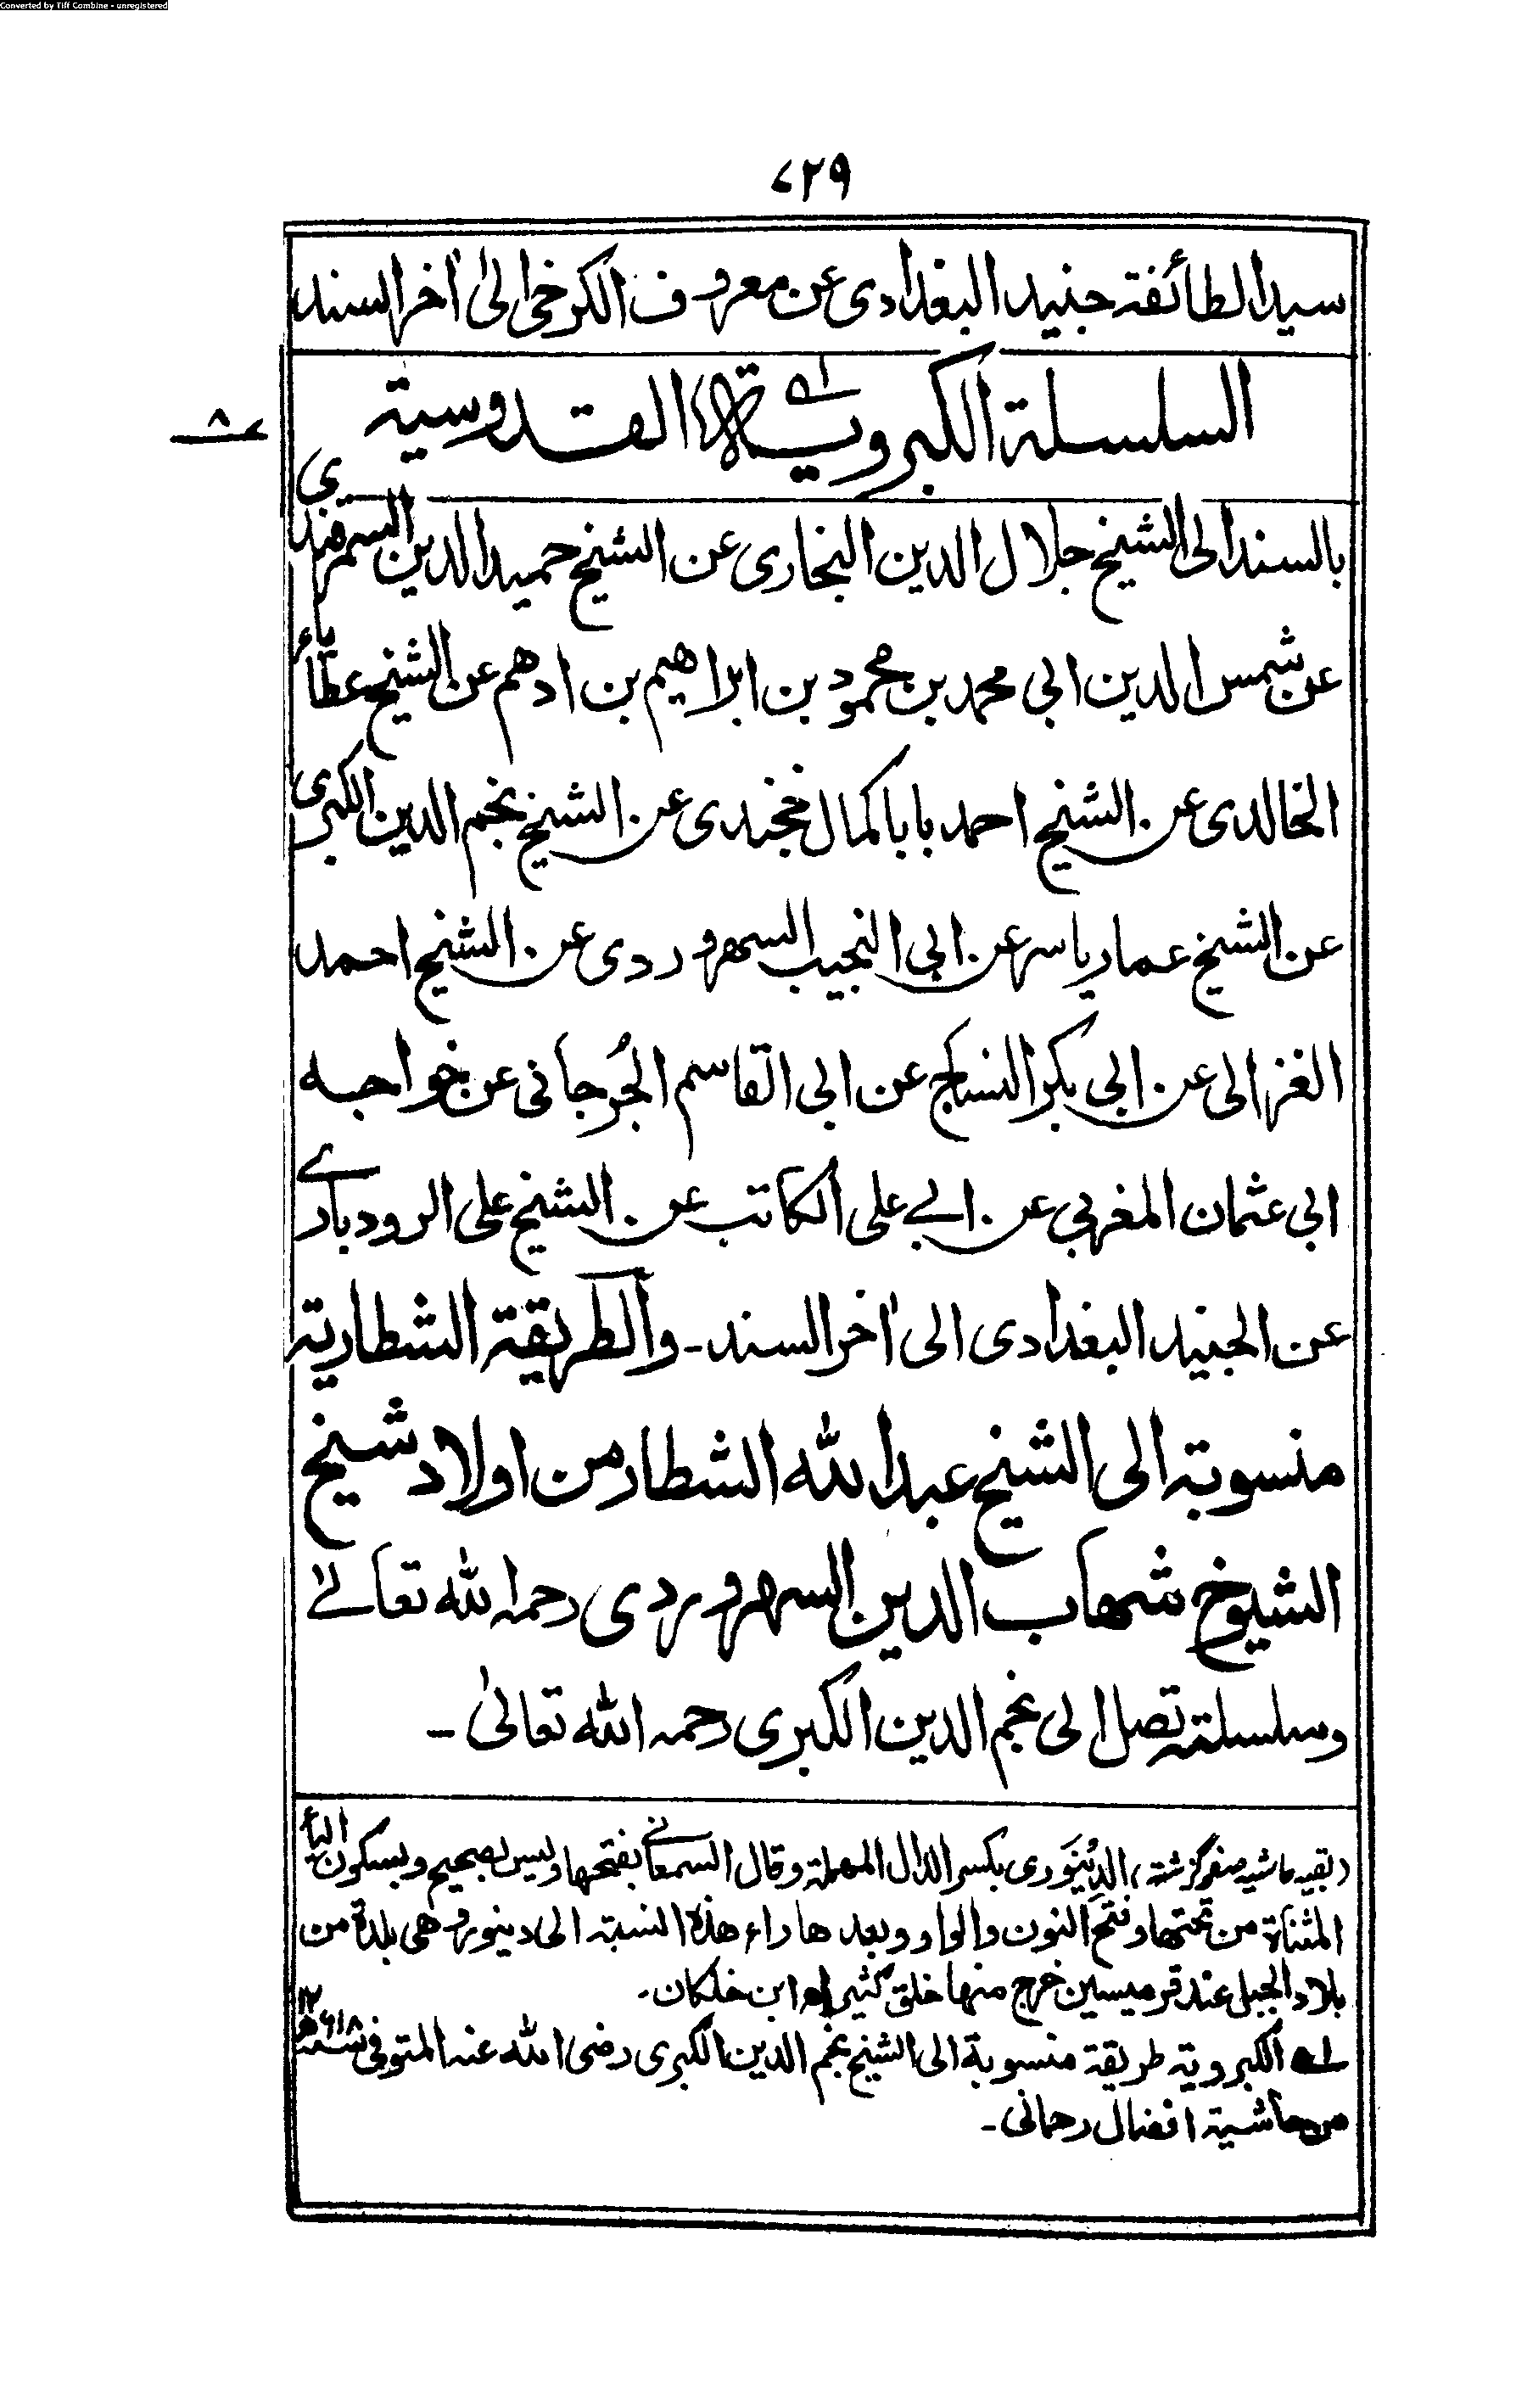 Converted by Tiff Combine - unregistered
۷۲۹
سید الطائفۃ جنید البغدادی عن معروف الکرخی الیٰ اٰخر السند
السلسلۃ الکبرویۃ القدوسیۃ
۸
بالسند الی الشیخ جلال الدین البخاری عن الشیخ حمید الدین السمرقندی
عن شمس الدین ابی محمد بن محمود بن ابراھیم بن ادھم عن الشیخ عطایاء
الخالدی عن الشیخ احمد بابا کمال خجندی عن الشیخ نجم الدین الکبری
عن الشیخ عمار یاسر عن ابی النجیب السھروردی عن الشیخ احمد
الغزالی عن ابی بکر النساج عن ابی القاسم الجُرجانی عن خواجہ
ابی عثمان المغربی عن ابے علی الکاتب عن الشیخ علی الرودبارے
عن الجنید البغدادی الی اٰخر السند ۔ والطریقۃ الشطاریۃ
منسوبۃ الی الشیخ عبد اللہ الشطار من اولاد شیخ
الشیوخ شھاب الدین السھروردی رحمہ اللہ تعالےٰ
وسلسلتہ تصل الی نجم الدین الکبری رحمہ اللہ تعالیٰ ۔
(بقیہ حاشیہ صفحہ گزشتہ) الدِّینَوری بکسر الدال المھملۃ وقال السمعانے بفتحھا ولیس بصحیح وبسکون الیاء
المثناۃ من تحتھا وفتح النون والواو وبعدھا راء ھذہ النسبۃ الی دینور وھی بلدۃ من
بلاد الجبل عند قرمیسین خرج منھا خلق کثیر اھ ابن خلکان ۔ ۱۲
لہ الکبرویۃ طریقۃ منسوبۃ الی الشیخ نجم الدین الکبری رضی اللہ عنہ المتوفی سنہ ۶۱۸ھ
من حاشیۃ افضال رحمانی ۔